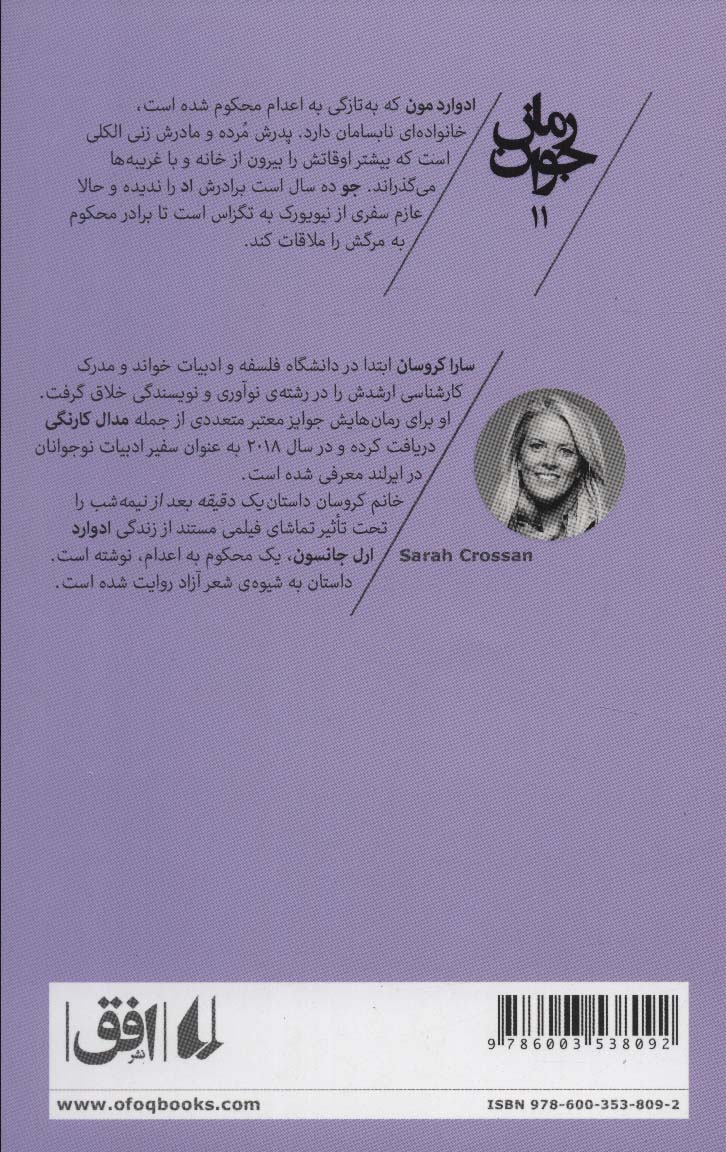 رمان
جوان
۱۱
ادوارد مون که به‌تازگی به اعدام محکوم شده است،
خانواده‌ای نابسامان دارد. پدرش مُرده و مادرش زنی الکلی
است که بیشتر اوقاتش را بیرون از خانه و با غریبه‌ها
می‌گذراند. جو ده سال است برادرش اد را ندیده و حالا
عازم سفری از نیویورک به تگزاس است تا برادر محکوم
به مرگش را ملاقات کند.
سارا کروسان ابتدا در دانشگاه فلسفه و ادبیات خواند و مدرک
کارشناسی ارشدش را در رشته‌ی نوآوری و نویسندگی خلاق گرفت.
او برای رمان‌هایش جوایز معتبر متعددی از جمله مدال کارنگی
دریافت کرده و در سال ۲۰۱۸ به عنوان سفیر ادبیات نوجوانان
در ایرلند معرفی شده است.
خانم کروسان داستان یک دقیقه بعد از نیمه‌شب را
تحت تأثیر تماشای فیلمی مستند از زندگی ادوارد
ارل جانسون، یک محکوم به اعدام، نوشته است.
داستان به شیوه‌ی شعر آزاد روایت شده است.
Sarah Crossan
نشر افق
9 786003 538092
www.ofoqbooks.com
ISBN 978-600-353-809-2